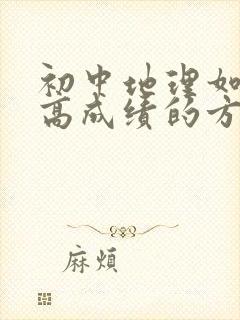 初中地理如
高成绩的方
麻煩